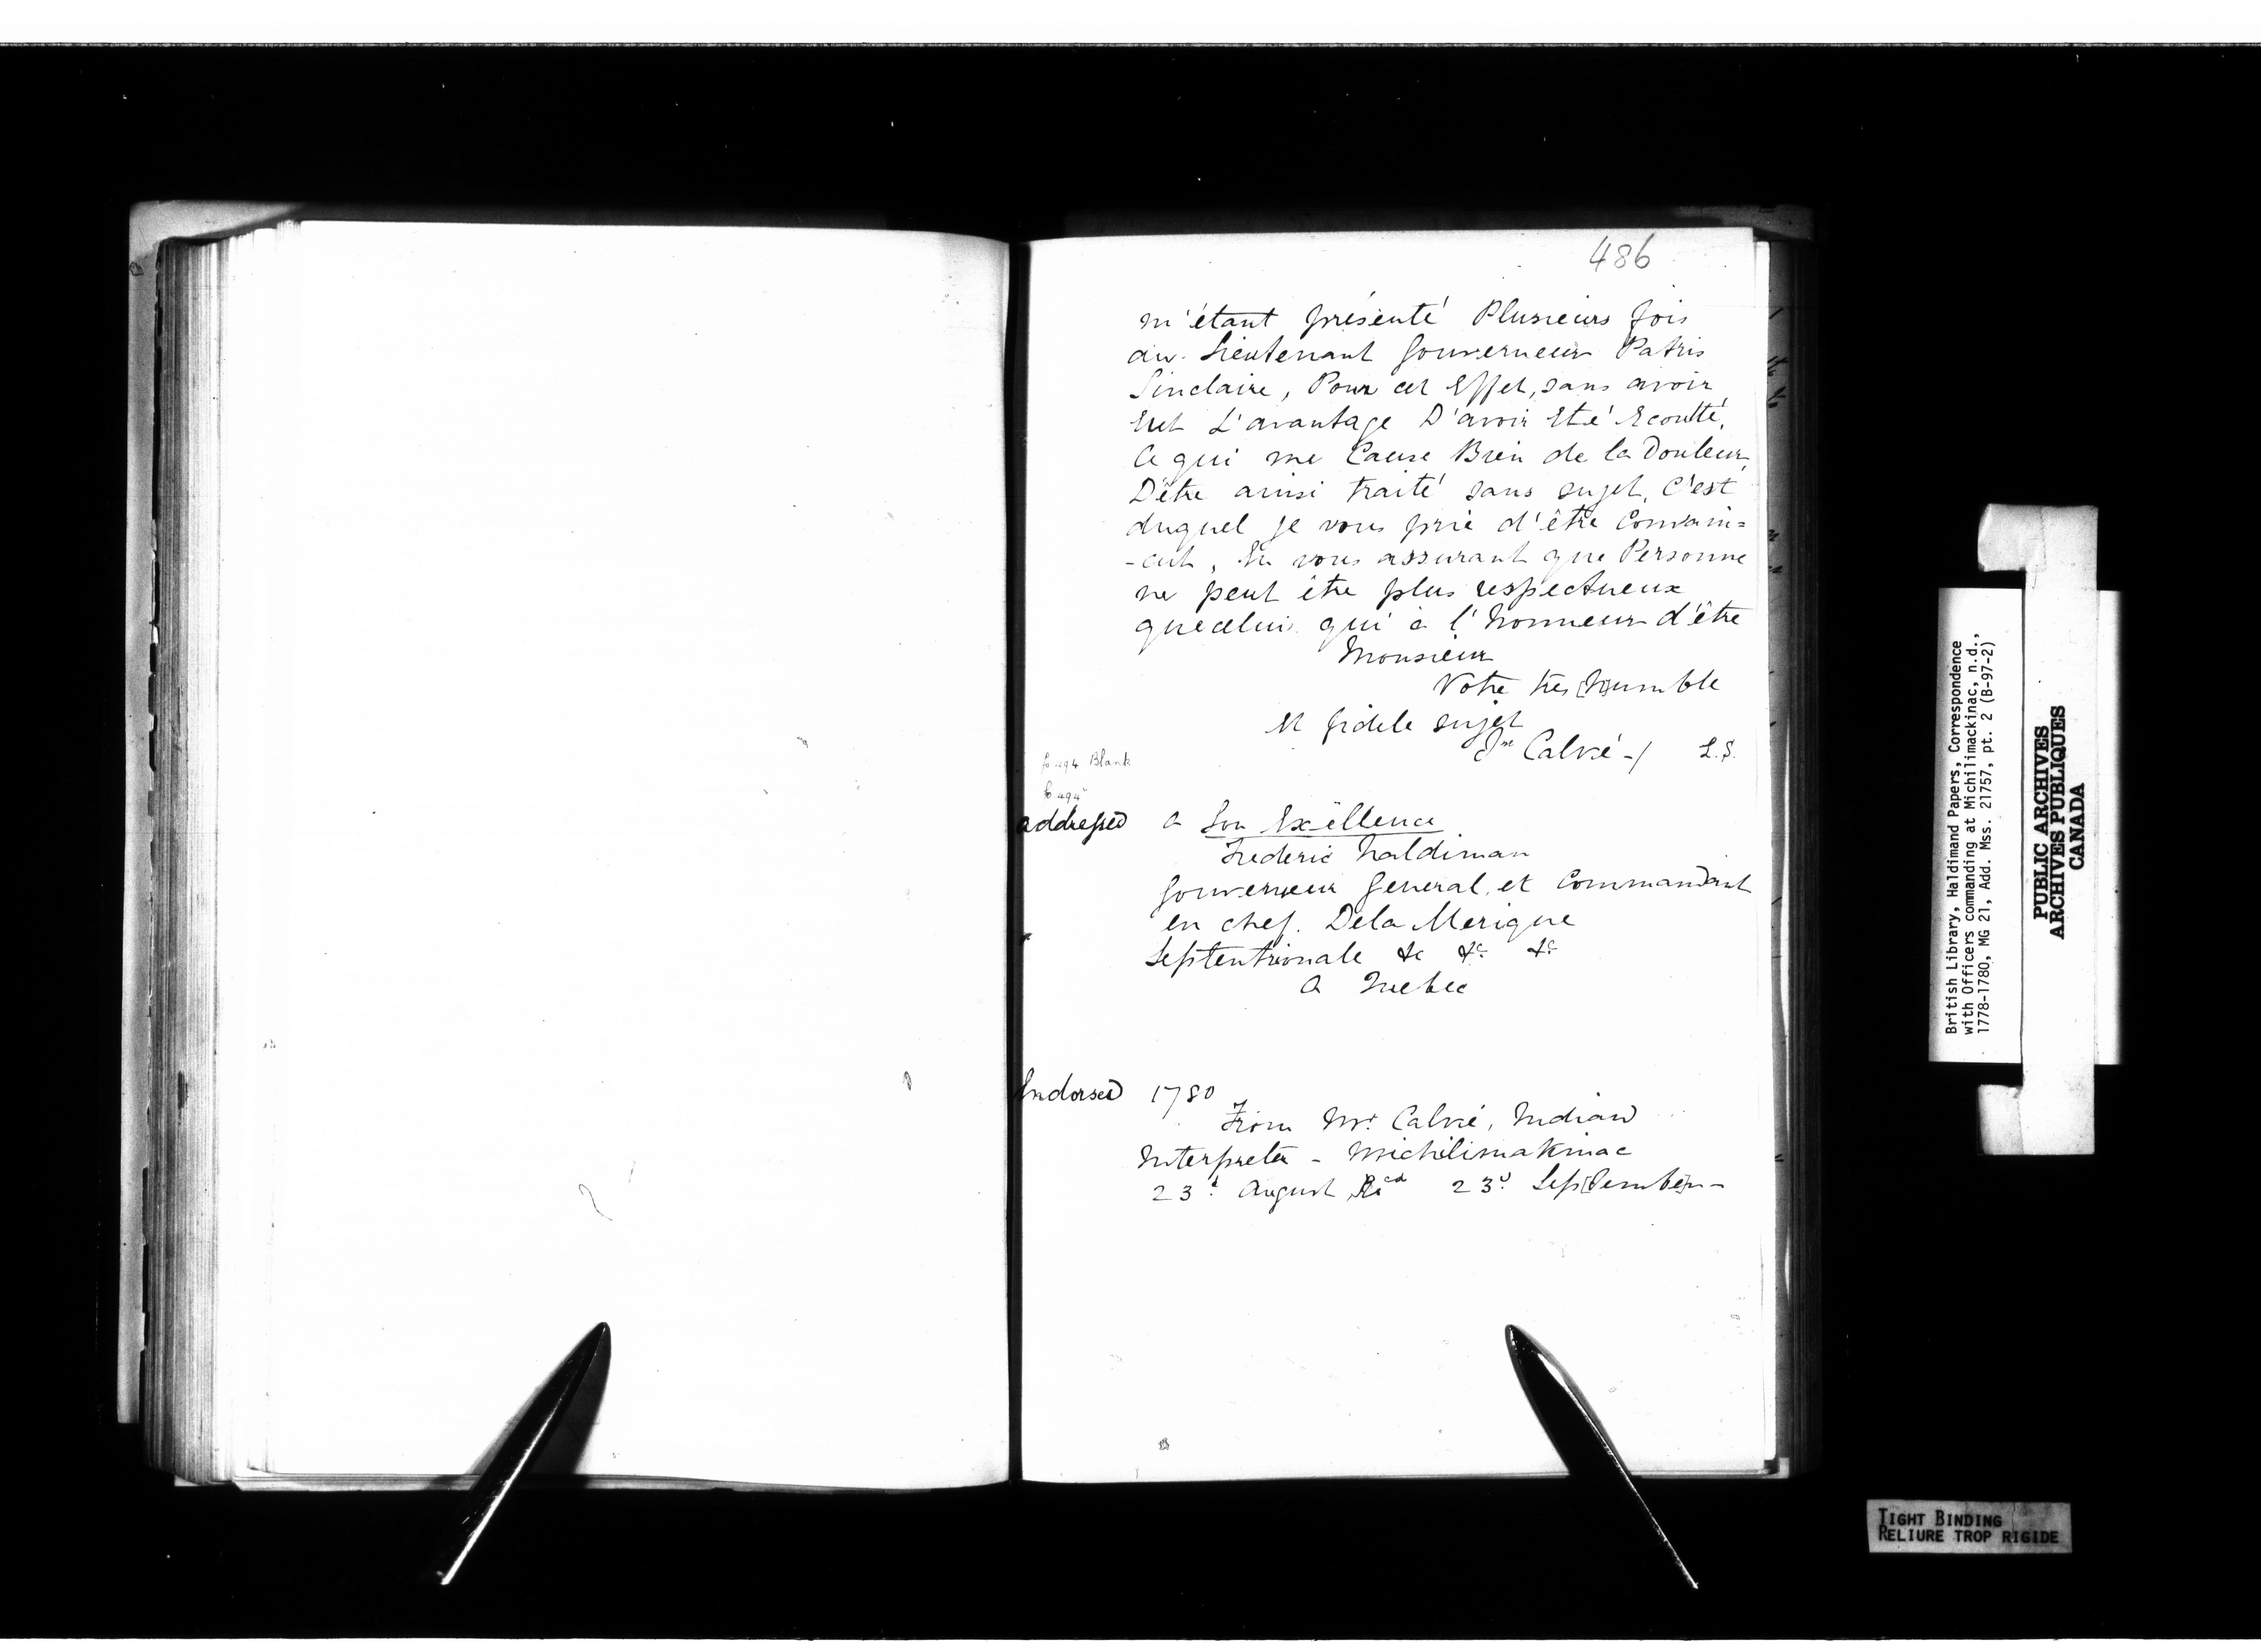 486
m'étant présenté Plusieurs fois
au Lieutenant Gouverneur Patris
Sinclaire, Pour cet Effet, sans avoir
Eut L'avantage D'avoir Eté Ecoutté,
Ce qui me Cause Bien de la Douleur,
D'être ainsi traité sans sujet, C'est
duquel je vous prie d'être Convain=
-cut, En vous assurant que Personne
ne peut être plus respectueux
que celui qui à l'honneur d'être
Monsieur
Votre très [h]umble
et fidele sujet
Jn Calvé -/ L.S.
fo 494 Blank
fo 494v
addressed a Son Exëllence
Frederic haldiman
Gouverneur General, et Commandant
en chef. Dela Merique
Septentrionale &c &c &c
A Quebec
Endorsed 1780
From Mr. Calvé, Indian
Interpreter - Michilimakinac
23d August Recd 23d Sep[tembe]r-
British Library, Haldimand Papers, Correspondence
with Officers commanding at Michilimackinac, n.d.,
1778-1780, MG 21, Add. Mss. 21757, pt. 2 (B-97-2)
PUBLIC ARCHIVES
ARCHIVES PUBLIQUES
CANADA
TIGHT BINDING
RELIURE TROP RIGIDE